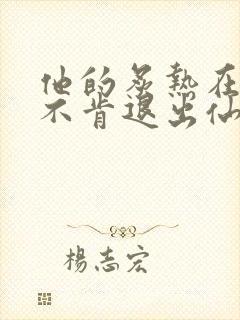 他的炙热在
不肯退出仙
楊志宏